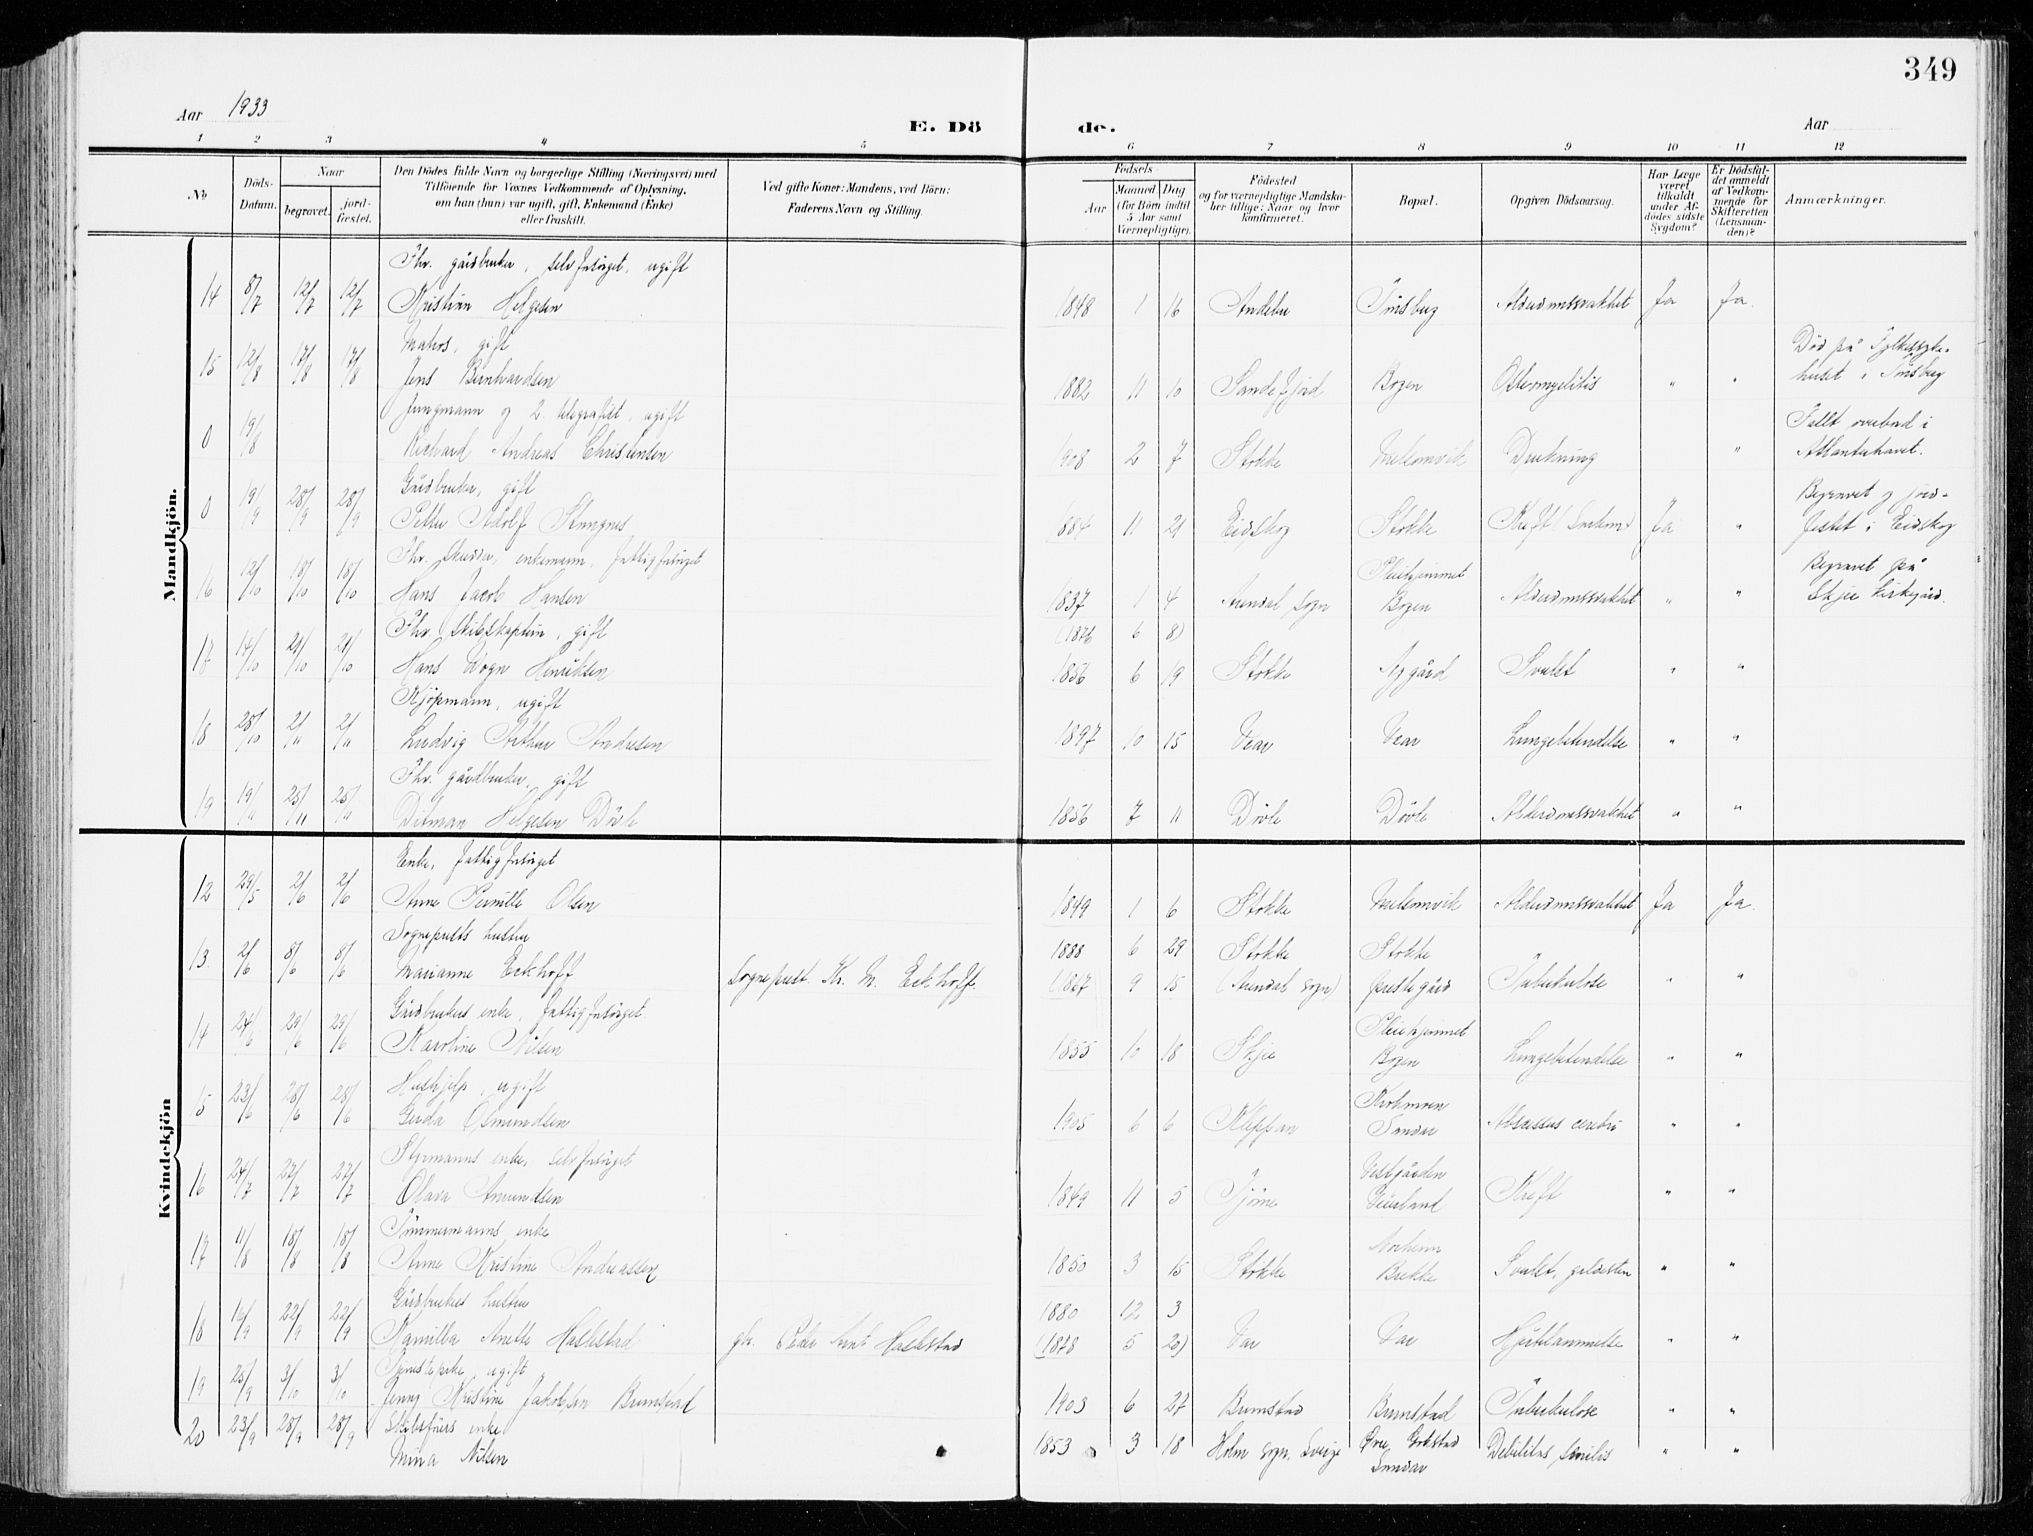 349
Aar 1933
E. Dö
de.
Aar
1 2 3 4 5 6 7 8 9 10 11 12
No.
Döds-
Datum.
Naar
begravet.
jord-
fæstet.
Den Dödes fulde Navn og borgerlige Stilling (Næringsvei) med
Tilföiende for Voxnes Vedkommende af Oplysning,
om han (hun) var ugift, gift, Enkemand (Enke)
eller fraskilt.
Ved gifte Koner: Mandens, ved Börn:
Faderens Navn og Stilling.
Födsels-
Aar
Maaned Dag
(for Börn indtil
5 Aar samt
Værnepligtige).
Födested
og for værnepligtige Mandska-
ber tillige: Naar og hvor
konfirmeret.
Bopæl.
Opgiven Dödsaarsag.
Har Læge
været
tilkaldt
under Af-
dödes sidste
Sygdom?
Er Dödsfal-
det anmeldt
af Vedkom-
mende for
Skifteretten
(Lensman-
den)?
Anmærkninger.
Mandkjön.
Fhv. gårdbruker, selvforsørget, ugift
14 8/7 12/7 12/7 Kristian Helgesen 1848 1 16 Andebu Tønsberg Alderdomssvakhet Ja Ja.
Matros, gift
15 12/8 17/8 17/8 Jens Bernhardsen 1882 11 10 Sandefjord Bogen Osteomyelitis " " Død på Fylkessyke-
huset i Tønsberg
Jungmann og 2. telegrafist, ugift
0 19/8 Richard Andreas Christensen 1908 2 7 Stokke Melsomvik Drukning " Falt overbord i
Atlanterhavet.
Gårdbruker, gift
0 19/9 28/9 28/9 Petter Adolf 1884 11 21 Eidskog Stokke Kreft Ja " Begravet og jord-
festet i Eidskog
Fhv. skredder, enkemann, fattigforsørget
16 12/10 18/10 18/10 Hans Jacob Hansen 1837 1 4 Arendal sogn Pleiehjemmet
Bogen Alderdomssvakhet " " Begravet på
Skjee kirkegård.
Fhv. skibskaptein, gift
(1876 6 8)
17 14/10 21/10 21/10 Hans Wogn Henriksen 1856 6 19 Stokke Nygård Svulst " "
Kjøpmann, ugift
18 28/10 2/11 2/11 Ludvig Arthur Andresen 1897 10 15 Vear Vear Lungebetendelse " "
Fhv. gårdbruker, gift
19 19/11 25/11 25/11 Ditman Helgesen Døvle 1856 7 11 Døvle Døvle Alderdomssvakhet " "
Kvindekjön
Enke, fattigforsørget
12 29/5 2/6 2/6 Anne Pernille Olsen 1849 1 6 Stokke Melsomvik Alderdomssvakhet Ja Ja.
Sogneprests hustru
13. 2/6 8/6 8/6 Marianne Eckhoff Sogneprest Kr. M. Eckhoff. 1888 6 29 Stokke Stokke
(1867 9 15 (Arendal sogn) prestegård Tuberkulose " "
Gårdbrukers enke, fattigforsørget.
14 24/6 29/6 29/6 Karoline Nilsen 1855 10 18 Skjee Pleiehjemmet
Bogen Lungebetendelse " "
Hushjelp, ugift
15 23/6 28/6 28/6 Gerda Osmundsen 1905 6 6 Kleppan
Sandar Abscessus cerebri " "
Styrmanns enke, selvforsørget
16 24/7 27/7 27/7 Olava Amundsen 1849 11 5 Tjøme Vestgården
Veierland Kreft " "
Tømmermanns enke
17 11/8 18/8 18/8 Anne Kristine Andreassen 1850 3 15 Stokke
Brekke Svulst, galdesten " "
Gårdbrukers hustru
18 16/9 22/9 22/9 Kamilla Anette Haslestad gbr. Peter Haslestad 1880 12 3
(1878 5 20) Var Var Hjertelammelse " "
Tjenestepike, ugift
19 25/9 3/10 3/10 Jenny Kristine Jakobsen Brunstad 1903 6 27 Brunstad Brunstad Tuberkulose " "
Skibsførers enke
20 23/9 28/9 28/9 Mina Nilsen 1853 3 18 Holm sogn, Sverige Øvre Gokstad
Sandar Debilitas senilis " "